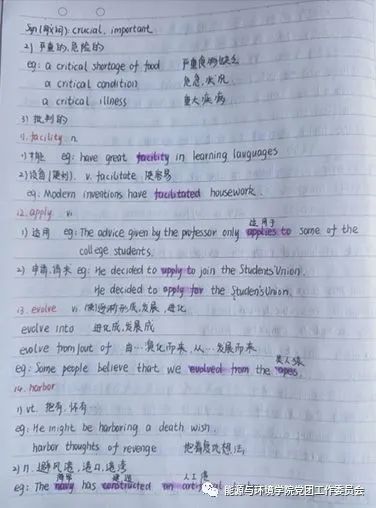 Syn(同义词): crucial, important
2) 严重的,危险的
eg: a critical shortage of food 严重食物缺乏
a critical condition 危急状况
a critical illness 重大疾病
3) 批判的
11. facility n.
1) 才能 eg: have great facility in learning languages
2) 设备(便利). v. facilitate 使容易
eg: Modern inventions have facilitated housework.
12. apply vi
适用于
1) 适用 eg: The advice given by the professor only applies to some of the
college students.
2) 申请,请求 eg: He decided to apply to join the Students' Union.
He decided to apply for the Students' Union.
13. evolve vi. (使)逐渐形成,发展,进化
evolve into 进化成,发展成
evolve from/out of 由…演化而来,从…发展而来
类人猿
eg: Some people believe that we evolved from the apes.
14. harbor
1) vt. 抱有,怀有
eg: He might be harboring a death wish.
harbor thoughts of revenge 抱着复仇想法
2) n. 避风港,港口,港湾
海军 建造 人工港
eg: The navy has constructed an
能源与环境学院党团工作委员会